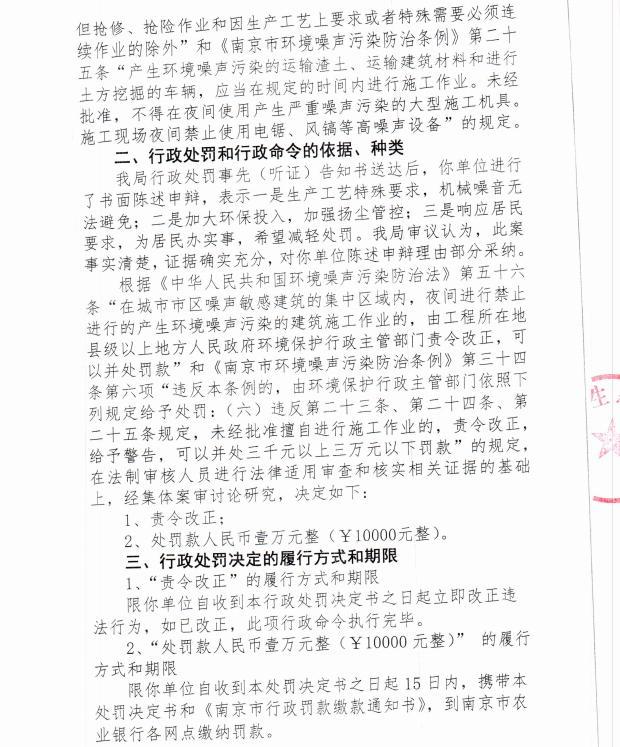 但抢修、抢险作业和因生产工艺上要求或者特殊需要必须连
续作业的除外”和《南京市环境噪声污染防治条例》第二十
五条“产生环境噪声污染的运输渣土、运输建筑材料和进行
土方挖掘的车辆，应当在规定的时间内进行施工作业。未经
批准，不得在夜间使用产生严重噪声污染的大型施工机具。
施工现场夜间禁止使用电锯、风镐等高噪声设备”的规定。
二、行政处罚和行政命令的依据、种类
我局行政处罚事先（听证）告知书送达后，你单位进行
了书面陈述申辩，表示一是生产工艺特殊要求，机械噪音无
法避免；二是加大环保投入，加强扬尘管控；三是响应居民
要求，为居民办实事，希望减轻处罚。我局审议认为，此案
事实清楚，证据确实充分，对你单位陈述申辩理由部分采纳。
根据《中华人民共和国环境噪声污染防治法》第五十六
条“在城市市区噪声敏感建筑的集中区域内，夜间进行禁止
进行的产生环境噪声污染的建筑施工作业的，由工程所在地
县级以上地方人民政府环境保护行政主管部门责令改正，可
以并处罚款”和《南京市环境噪声污染防治条例》第三十四
条第六项“违反本条例的，由环境保护行政主管部门依照下
列规定给予处罚：（六）违反第二十三条、第二十四条、第
二十五条规定，未经批准擅自进行施工作业的，责令改正，
给予警告，可以并处三千元以上三万元以下罚款”的规定，
在法制审核人员进行法律适用审查和核实相关证据的基础
上，经集体案审讨论研究，决定如下：
1、责令改正；
2、处罚款人民币壹万元整（￥10000元整）。
三、行政处罚决定的履行方式和期限
1、“责令改正”的履行方式和期限
限你单位自收到本行政处罚决定书之日起立即改正违
法行为，如已改正，此项行政命令执行完毕。
2、“处罚款人民币壹万元整（￥10000 元整）” 的履行
方式和期限
限你单位自收到本处罚决定书之日起 15 日内，携带本
处罚决定书和《南京市行政罚款缴款通知书》，到南京市农
业银行各网点缴纳罚款。
生